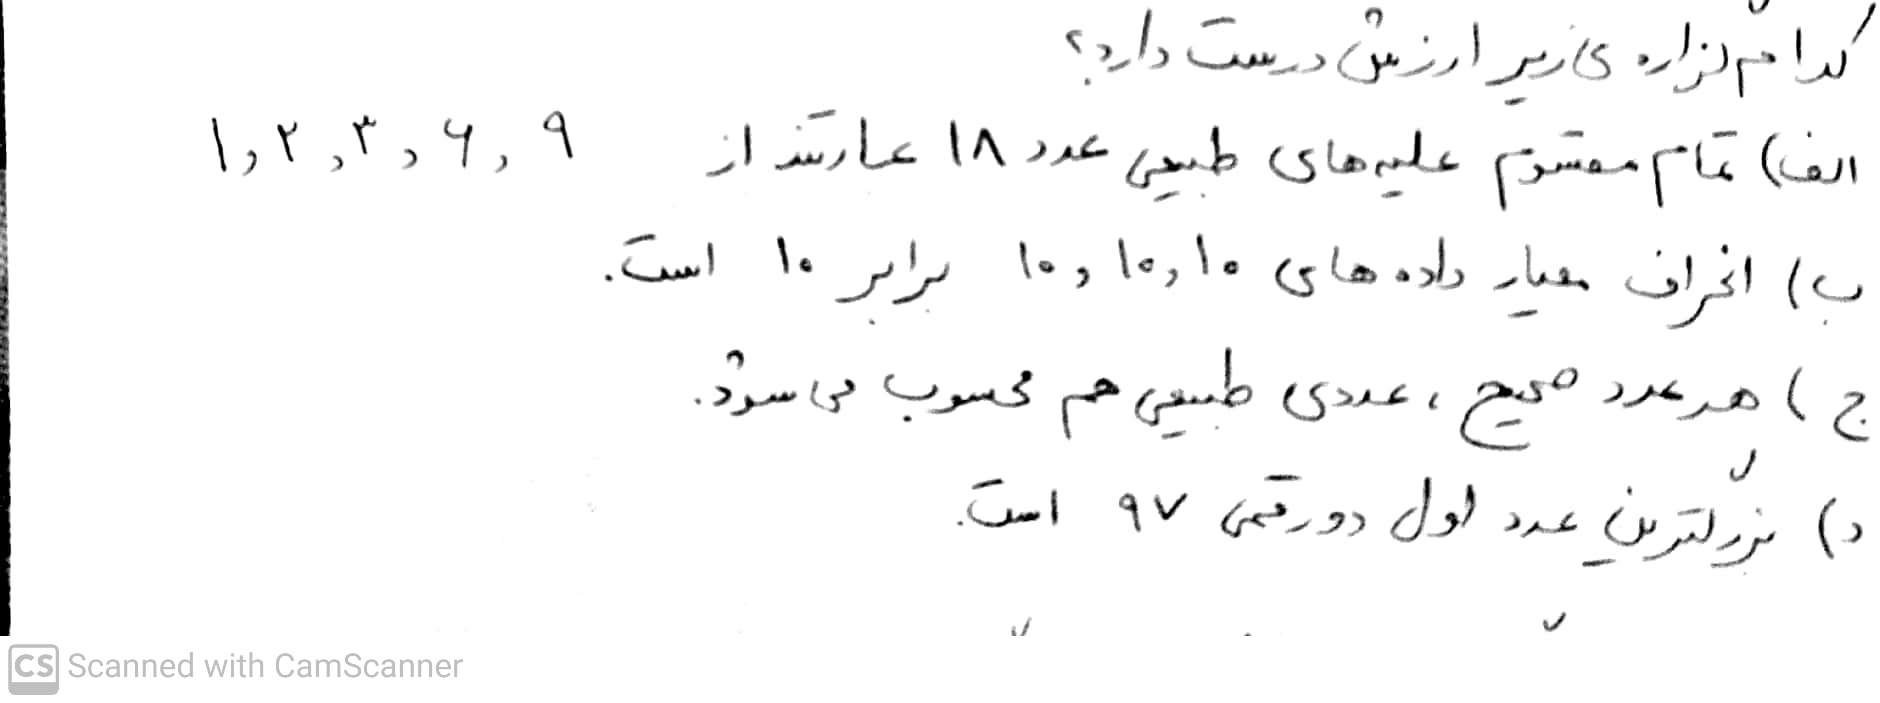 کدام گزاره ی زیر ارزش درست دارد؟
الف) تمام مقسوم علیه های طبیعی عدد ۱۸ عبارتند از ۱ و ۲ و ۳ و ۶ و ۹
ب) انحراف معیار داده های ۱۰ و ۱۰ و ۱۰ برابر ۱۰ است.
ج) هر عدد صحیح ، عددی طبیعی هم محسوب می شود.
د) بزرگترین عدد اول دورقمی ۹۷ است.
CS Scanned with CamScanner